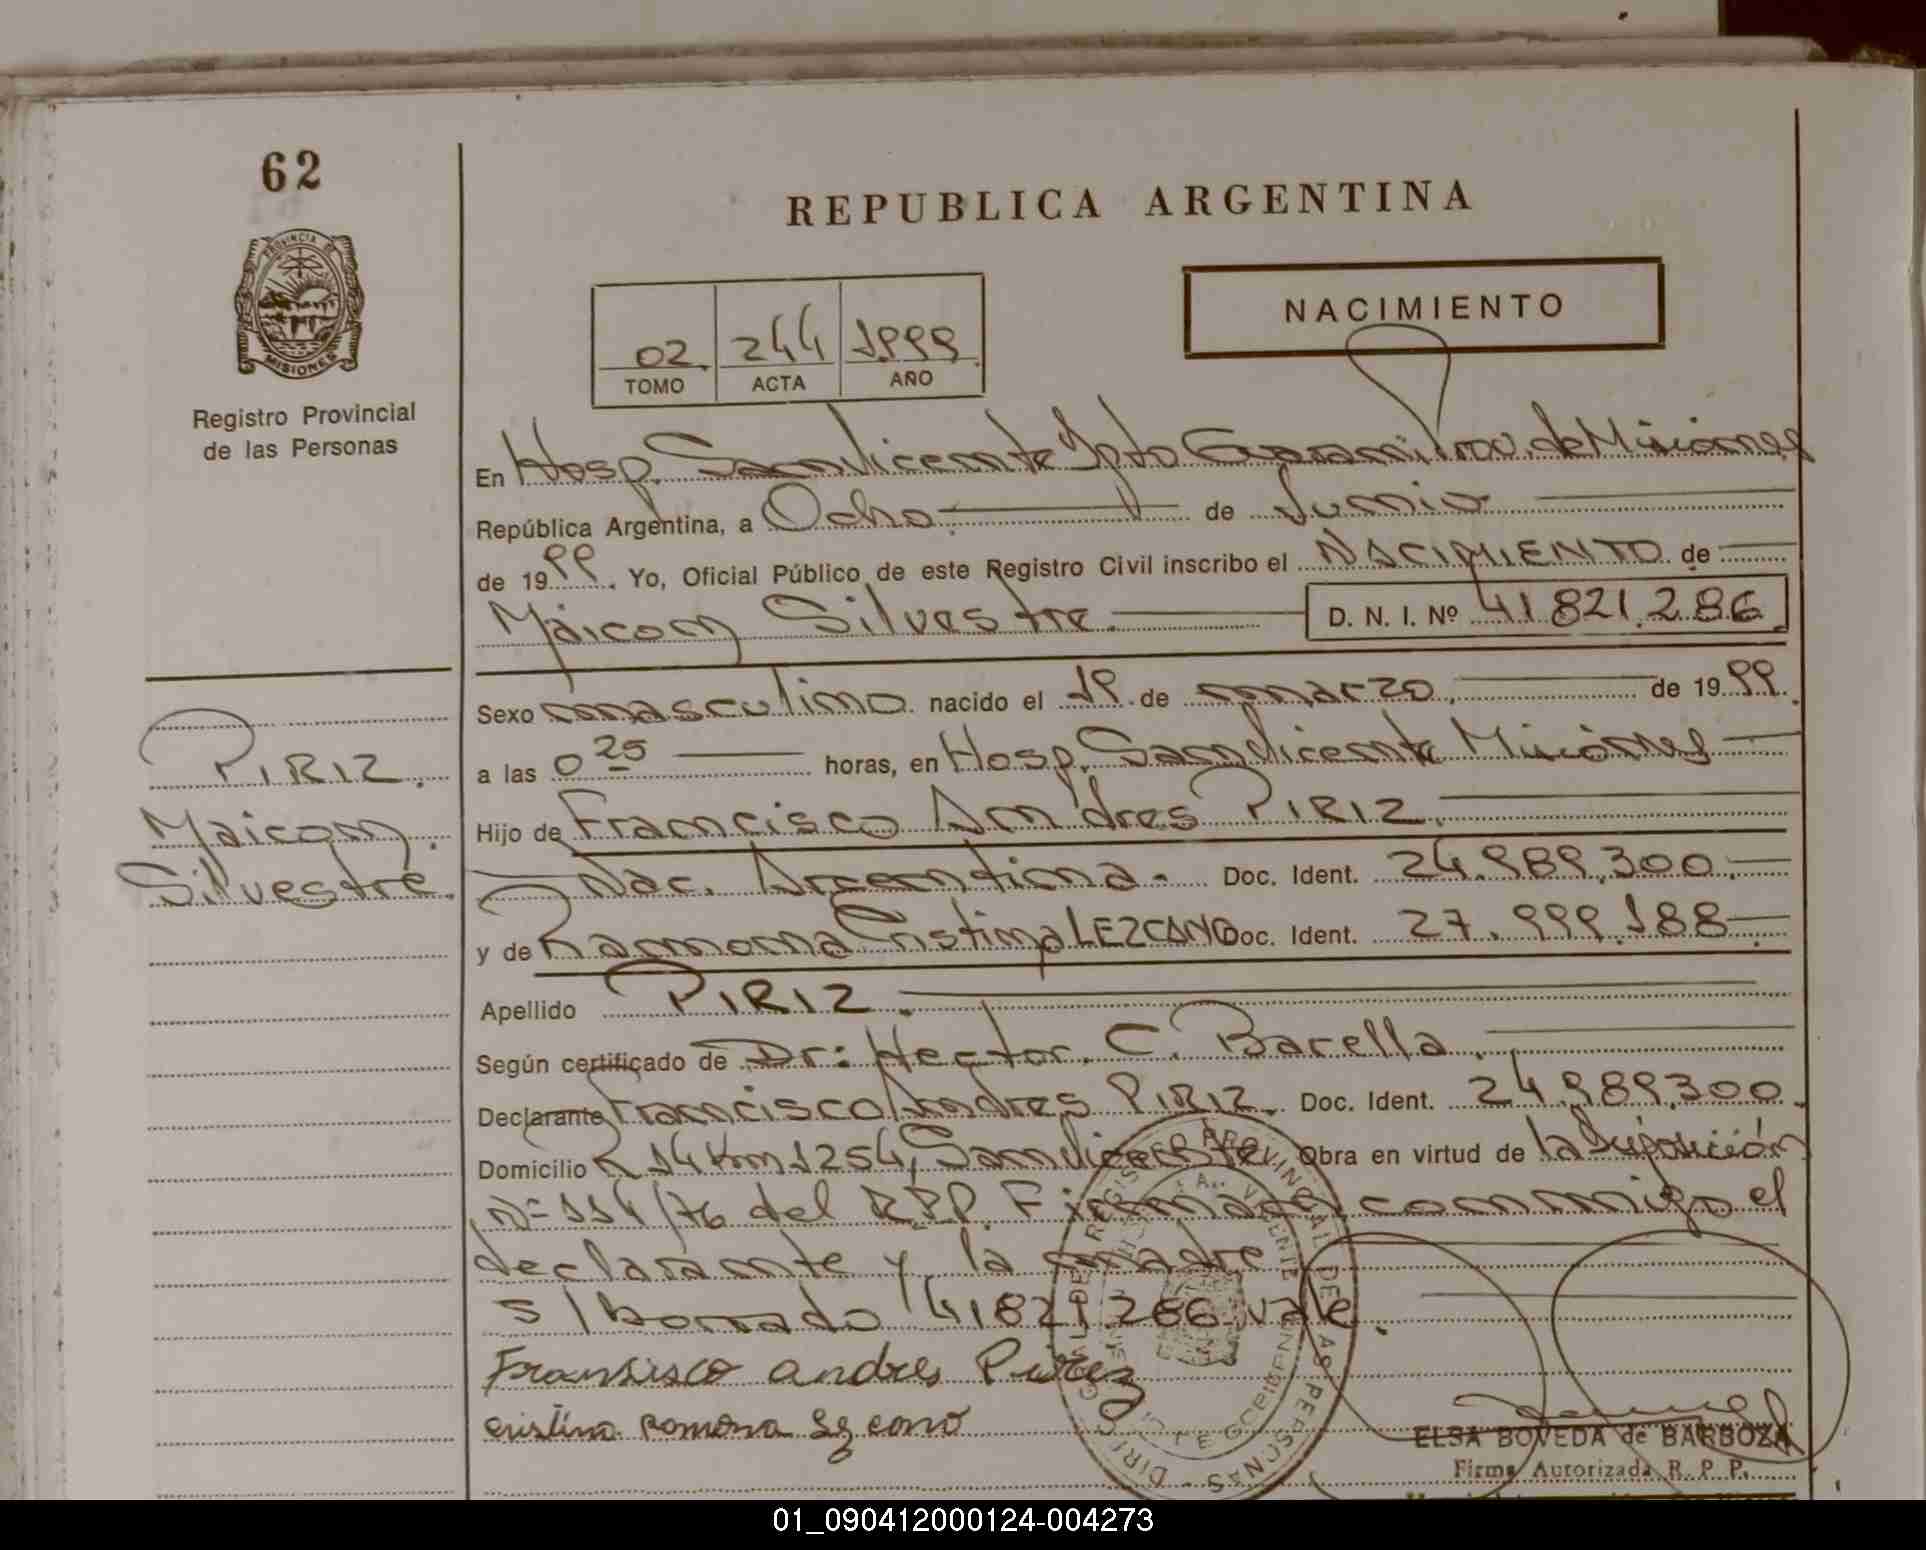 62
REPUBLICA ARGENTINA
PROVINCIA DE
MISIONES
Registro Provincial
de las Personas
02 244 1999
TOMO ACTA AÑO
NACIMIENTO
En Hosp. San Vicente Dpto Guarani Prov. de Misiones
República Argentina, a Ocho de Junio
de 1999. Yo, Oficial Público de este Registro Civil inscribo el NACIMIENTO de
Maicon Silvestre. D. N. I. Nº 41.821.286
Sexo masculino nacido el 19 de marzo de 1999.
a las 0 25 horas, en Hosp. San Vicente Misiones
Hijo de Francisco Andres PIRIZ.
Nac. Argentina. Doc. Ident. 24.989.300.
y de Ramona Cristina LEZCANO Doc. Ident. 27.999.188
Apellido PIRIZ.
Según certificado de Dr: Hector. C. Barella.
Declarante Francisco Andres PIRIZ. Doc. Ident. 24.989.300.
Domicilio R 14 Km 1254, San Vicente. Obra en virtud de la Disposición
Nº 114/76 del R.P.P. Firmando conmigo el
declarante y la madre
s/borrado "41821286" vale.
Fransisco andres Pirez
cristina Romona Lezcano
PIRIZ.
Maicon.
Silvestre.
ELSA BOVEDA de BARBOZA
Firma Autorizada R. P. P.
01_090412000124-004273